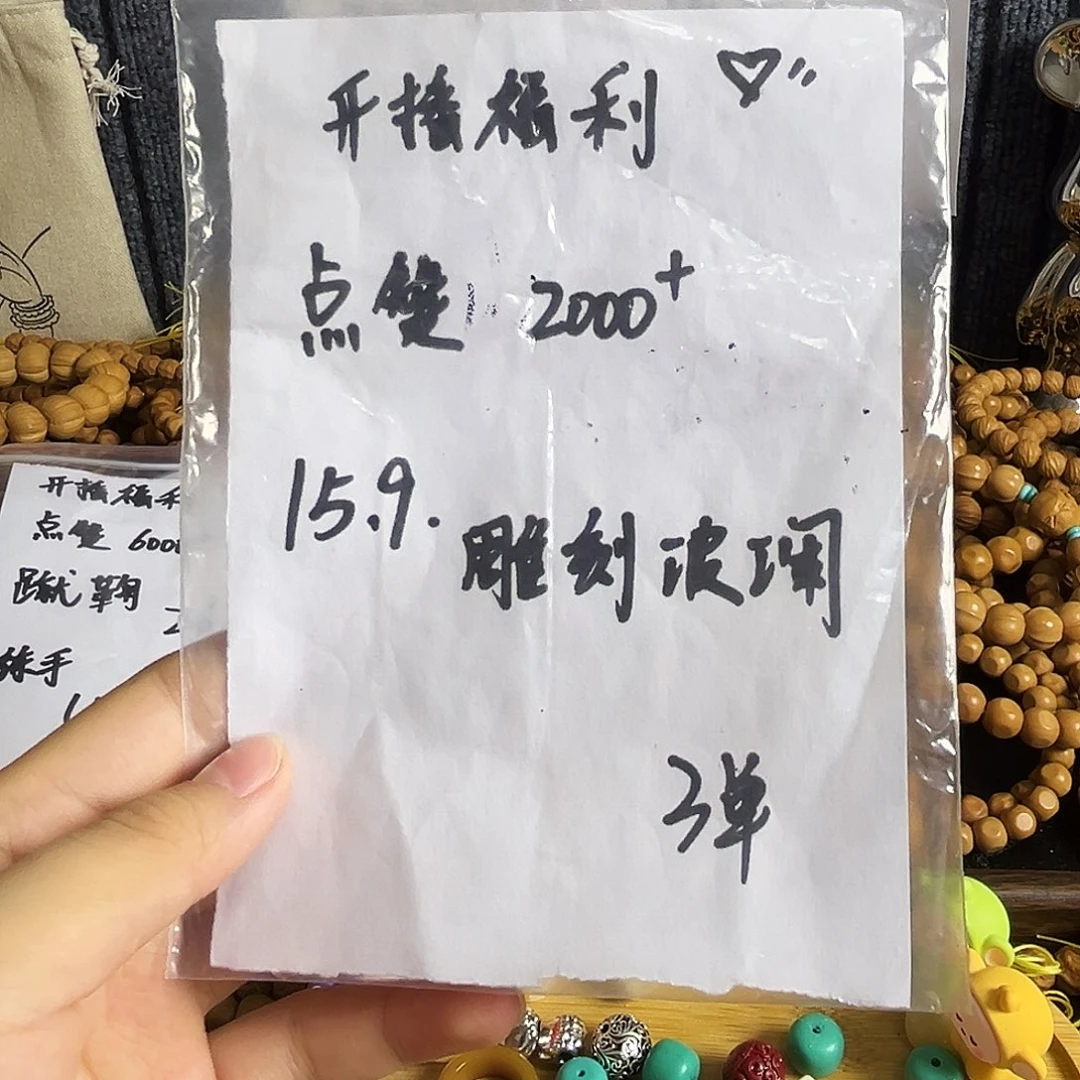 开播福利
点赞 2000+
15.9. 雕刻波澜
3单
开播福利
点赞 600
蹴鞠
手